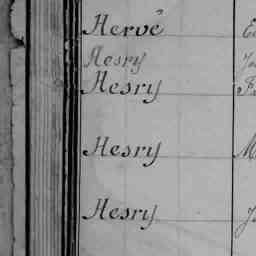 Hervé
Hesry
Hesry
Hesry
Hesry